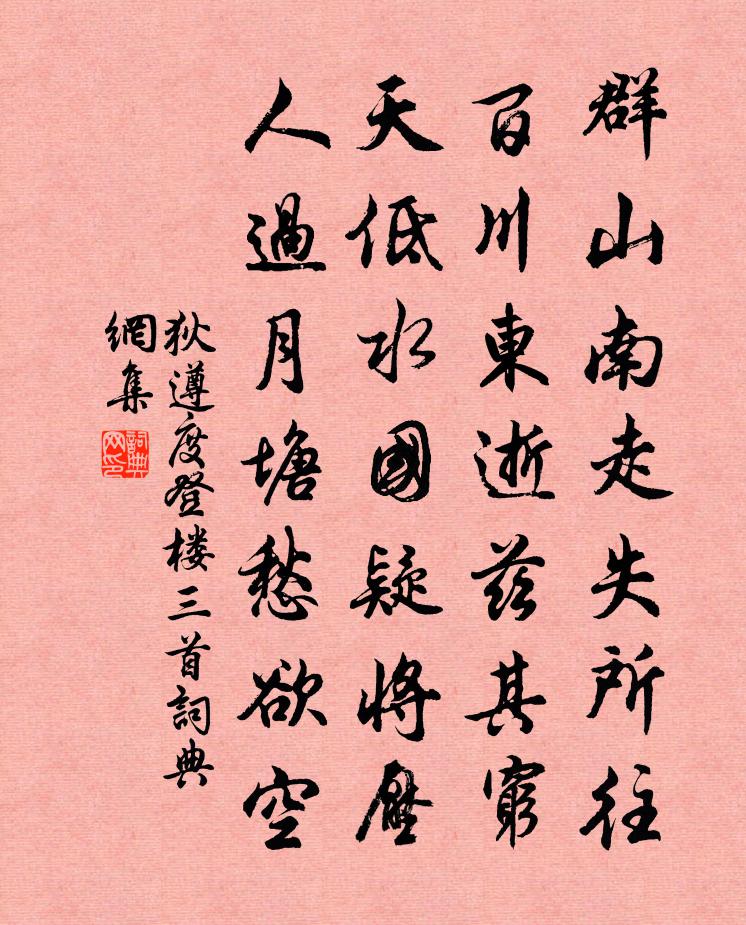 群山南走失所往
百川東逝兹其窮
天低水國疑將壓
人過月塘愁欲空
狄遵度登楼三首詞典
網集
詞典
网印